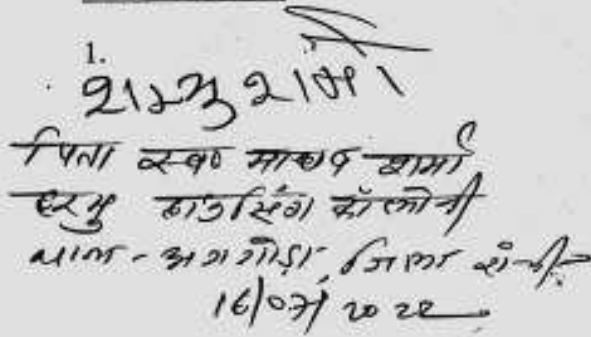 1.
शम्भु शर्मा
पिता स्व० माधव शर्मा
हरमु हाउसिंग कॉलोनी
थाना - अरगोड़ा, जिला राँची
16/07/2022